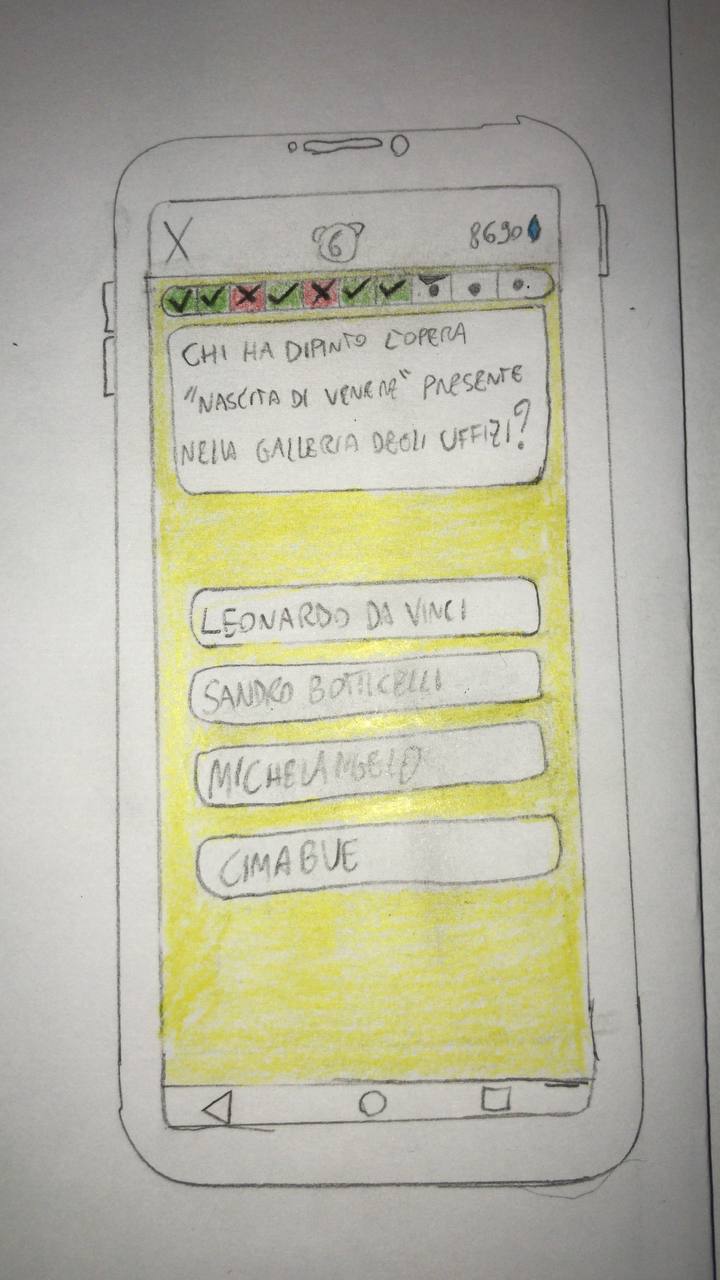 X 6 8690
CHI HA DIPINTO L'OPERA
"NASCITA DI VENERE" PRESENTE
NELLA GALLERIA DEGLI UFFIZI?
LEONARDO DA VINCI
SANDRO BOTTICELLI
MICHELANGELO
CIMABUE